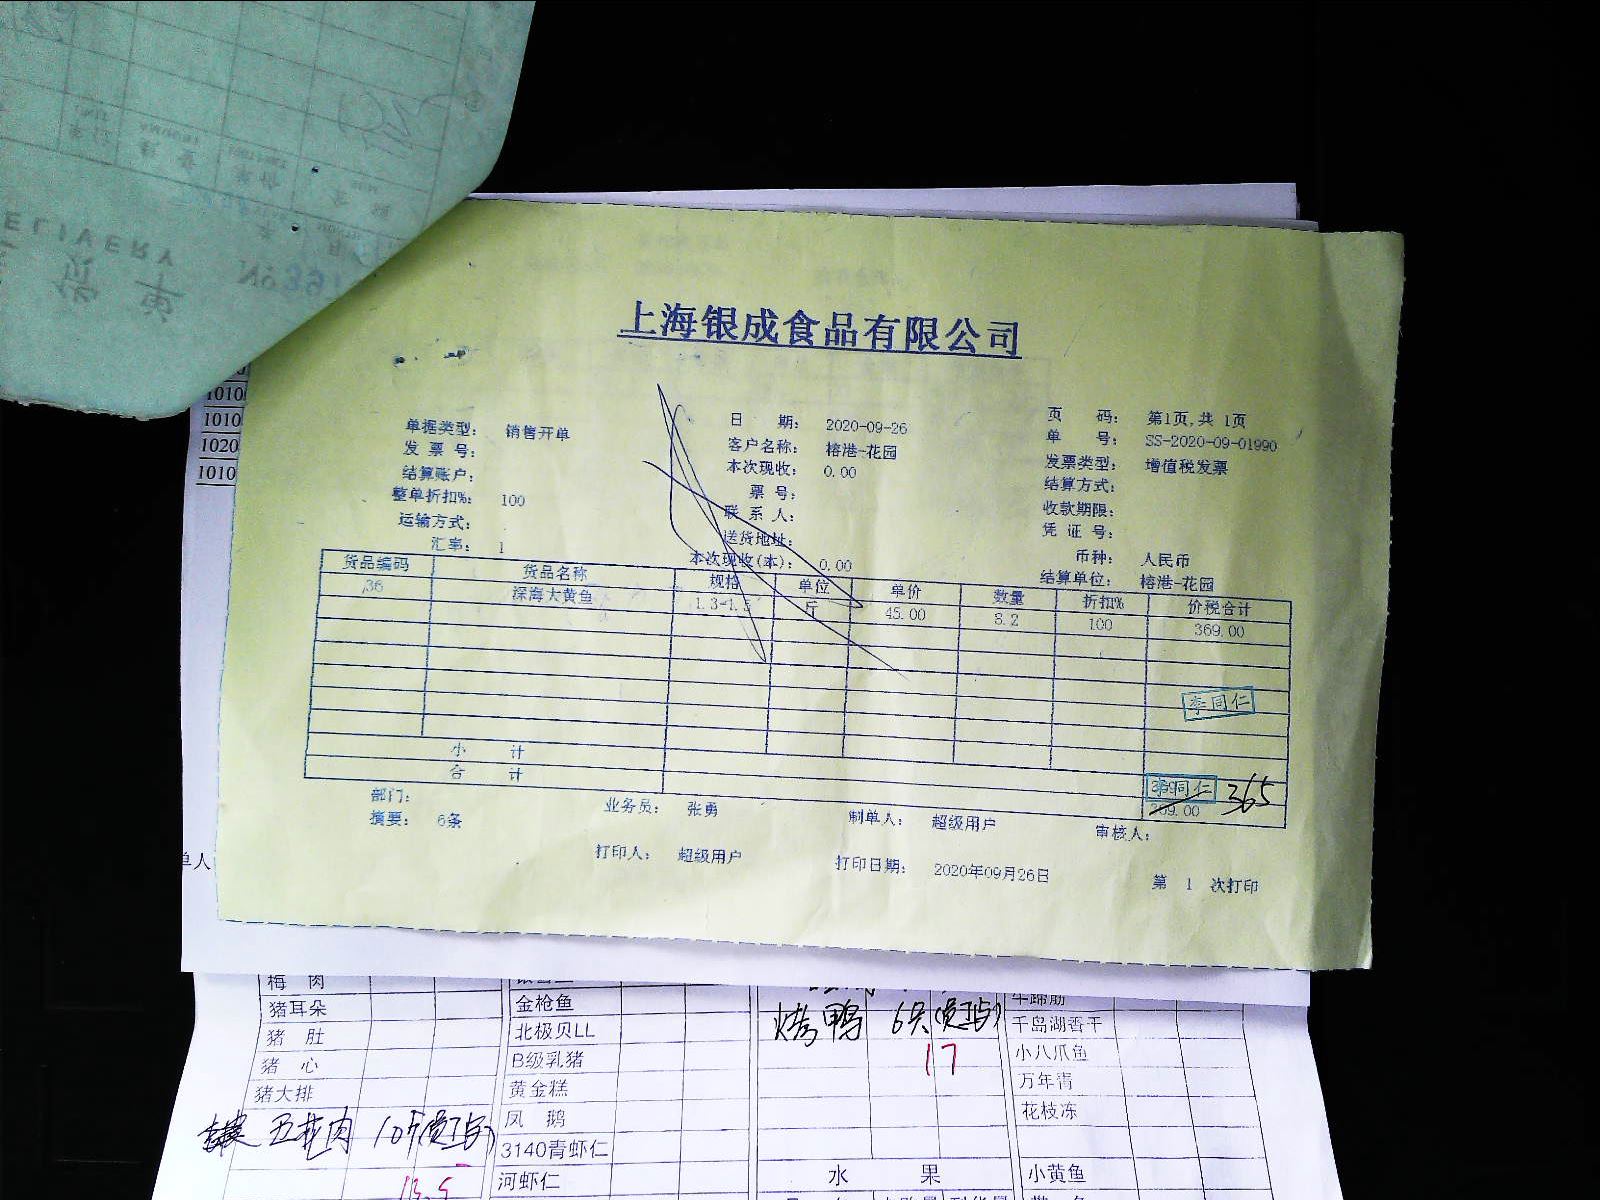 ELIVERY
No
1010
1010
1020
1010
上海银成食品有限公司
单据类型： 销售开单 日 期： 2020-09-26 页 码： 第1页,共 1页
发 票 号： 客户名称： 榕港-花园 单 号： SS-2020-09-01990
结算账户： 本次现收： 0.00 发票类型： 增值税发票
整单折扣%： 100 票 号： 结算方式：
运输方式： 联 系 人： 收款期限：
汇率： 1 送货地址： 凭 证 号：
本次现收(本)： 0.00 币种： 人民币
结算单位： 榕港-花园
货品编码 货品名称 规格 单位 单价 数量 折扣% 价税合计
36 深海大黄鱼 1.3-1.5 斤 45.00 8.2 100 369.00
李同仁
小 计
合 计 李同仁 369.00 365
部门： 业务员： 张勇 制单人： 超级用户 审核人：
摘要： 6条
打印人： 超级用户 打印日期： 2020年09月26日 第 1 次打印
单人
梅 肉
猪耳朵 金枪鱼 烤鸭 6只(员工占) 千岛湖香干
猪 肚 北极贝LL 17 小八爪鱼
猪 心 B级乳猪 万年青
猪大排 黄金糕 花枝冻
五花肉 10斤(员工占) 凤 鹅
3140青虾仁
13.5 河虾仁 水 果 小黄鱼